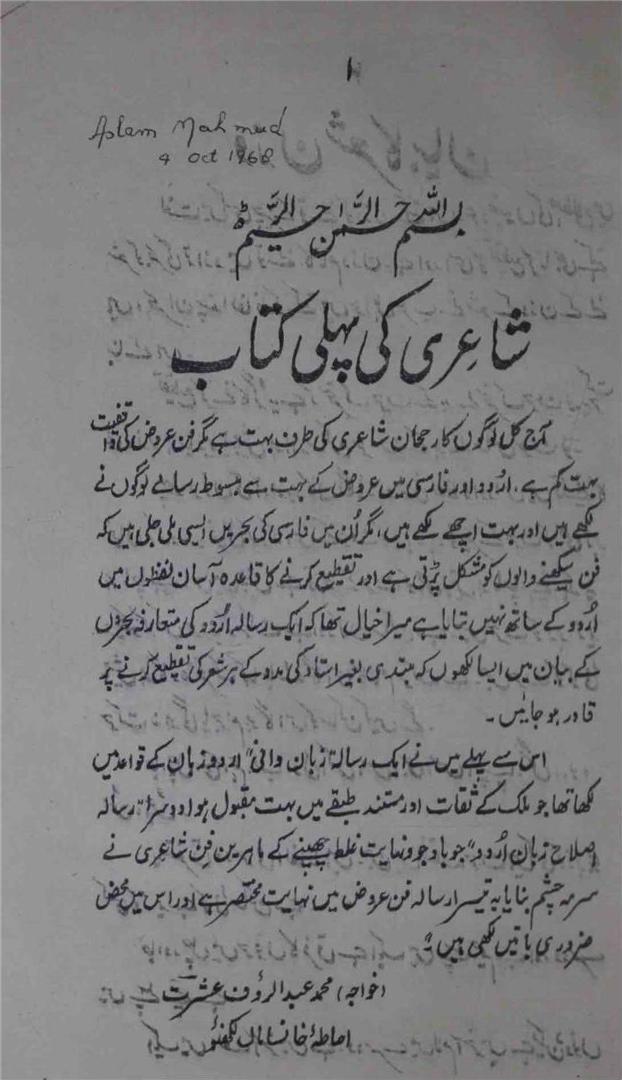 ۱
Aslam Mahmud
4 Oct 1968
بسم اللہ الرحمن الرحیم
شاعری کی پہلی کتاب
آج کل لوگوں کا رجحان شاعری کی طرف بہت ہے مگر فن عروض کی واقفیت
بہت کم ہے۔ اُردو اور فارسی میں عروض کے بہت سے مبسوط رسالے لوگوں نے
لکھے ہیں اور بہت اچھے لکھے ہیں، مگر اُن میں فارسی کی بحریں ایسی ملی جلی ہیں کہ
فن سیکھنے والوں کو مشکل پڑتی ہے اور تقطیع کرنے کا قاعدہ آسان لفظوں میں
اُردو کے ساتھ نہیں بتایا ہے میرا خیال تھا کہ ایک رسالہ اُردو کی متعارفہ بحروں
کے بیان میں ایسا لکھوں کہ مبتدی بغیر استاد کی مدد کے ہر شعر کی تقطیع کرنے پر
قادر ہو جائیں۔
اس سے پہلے میں نے ایک رسالہ "زبان دانی" اردو زبان کے قواعد میں
لکھا تھا جو ملک کے ثقات اور مستند طبقے میں بہت مقبول ہوا دوسرا رسالہ
"اصلاح زبان اُردو" جو باوجود نہایت غلط چھپنے کے ماہرین فن شاعری نے
سرمہ چشم بنایا یہ تیسرا رسالہ فن عروض میں نہایت مختصر ہے اور اس میں محض
ضروری باتیں لکھی ہیں۔"
(خواجہ) محمد عبدالرؤف عشرت
احاطۂ خانساماں لکھنؤ